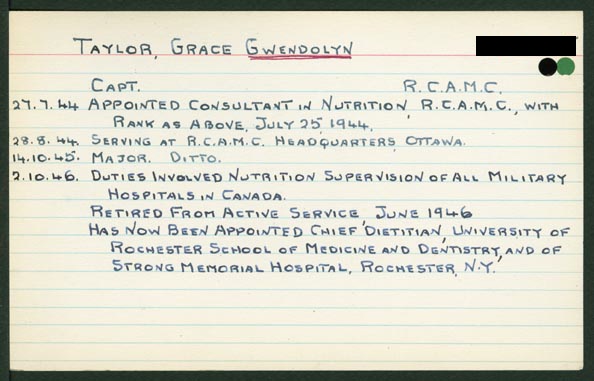 TAYLOR, GRACE GWENDOLYN
CAPT. R.C.A.M.C.
27.7.44 APPOINTED CONSULTANT IN NUTRITION, R.C.A.M.C., WITH
RANK AS ABOVE, JULY 25, 1944.
28.8.44. SERVING AT R.C.A.M.C. HEADQUARTERS, OTTAWA.
14.10.45. MAJOR. DITTO.
2.10.46. DUTIES INVOLVED NUTRITION SUPERVISION OF ALL MILITARY
HOSPITALS IN CANADA.
RETIRED FROM ACTIVE SERVICE, JUNE 1946
HAS NOW BEEN APPOINTED CHIEF DIETITIAN, UNIVERSITY OF
ROCHESTER SCHOOL OF MEDICINE AND DENTISTRY, AND OF
STRONG MEMORIAL HOSPITAL, ROCHESTER, N.Y.